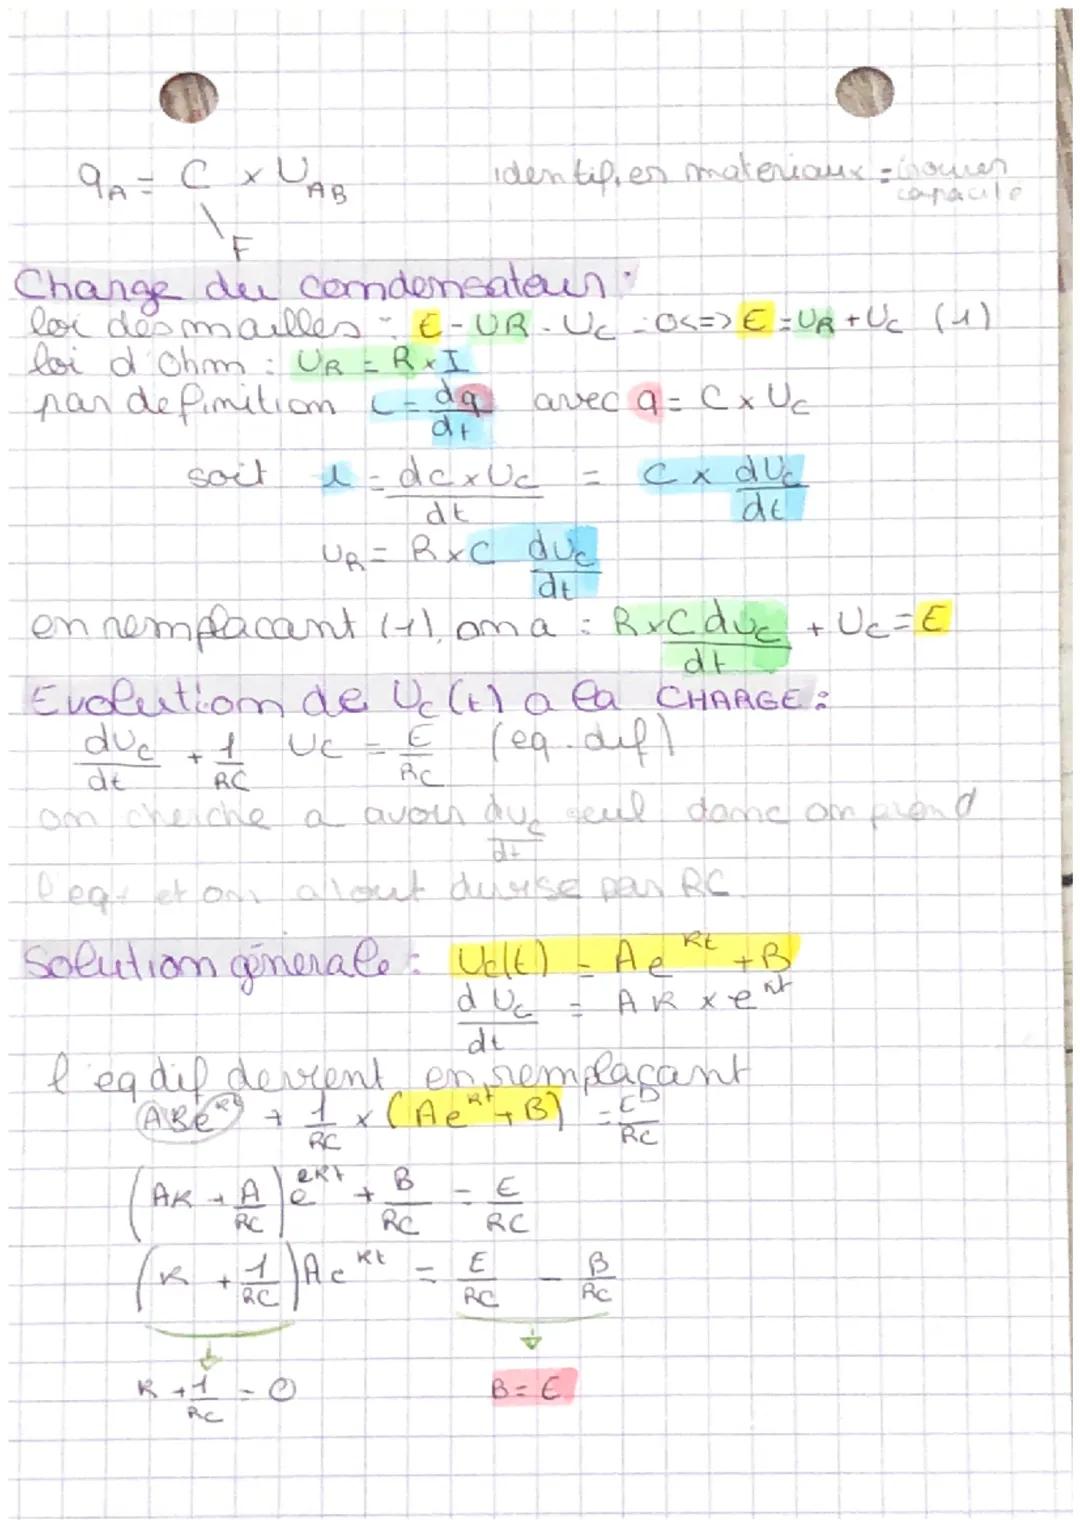 qA = C x UAB identifier materiaux = trouver
capacité
F
Charge du condensateur :
loi des mailles : E - UR - Uc = 0 <=> E = UR + Uc (1)
loi d'Ohm : UR = R x I
par definition i = dq/dt avec q = C x Uc
soit i = dc x Uc/dt = C x dUc/dt
UR = R x C duc/dt
en remplacant (1), on a : R x C duc/dt + Uc = E
Evolution de Uc(t) a la CHARGE :
duc/dt + 1/RC Uc = E/RC (eq. dif)
on cherche a avoir duc/dt seul donc on prend
l'eq et on divise par RC
Solution génerale : Uc(t) = Ae^Kt + B
dUc/dt = AK x e^Kt
l'eq dif devient en remplaçant
AKe^Kt + 1/RC x (Ae^Kt + B) = E/RC
(AK + A/RC) e^Kt + B/RC = E/RC
(K + 1/RC) Ae^Kt = E/RC - B/RC
K + 1/RC = 0 B = E